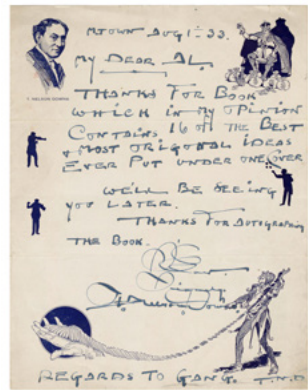 MTOWN AUG 1-33.
T. NELSON DOWNS
MY DEAR AL.
THANKS FOR BOOK
WHICH IN MY OPINION
CONTAINS 16 OF THE BEST
& MOST ORIGONAL IDEAS
EVER PUT UNDER ONE COVER
WE'LL BE SEEING
YOU LATER.
THANKS FOR AUTOGRAPHING
THE BOOK.
T. Nelson Downs
REGARDS TO GANG. T.N.D